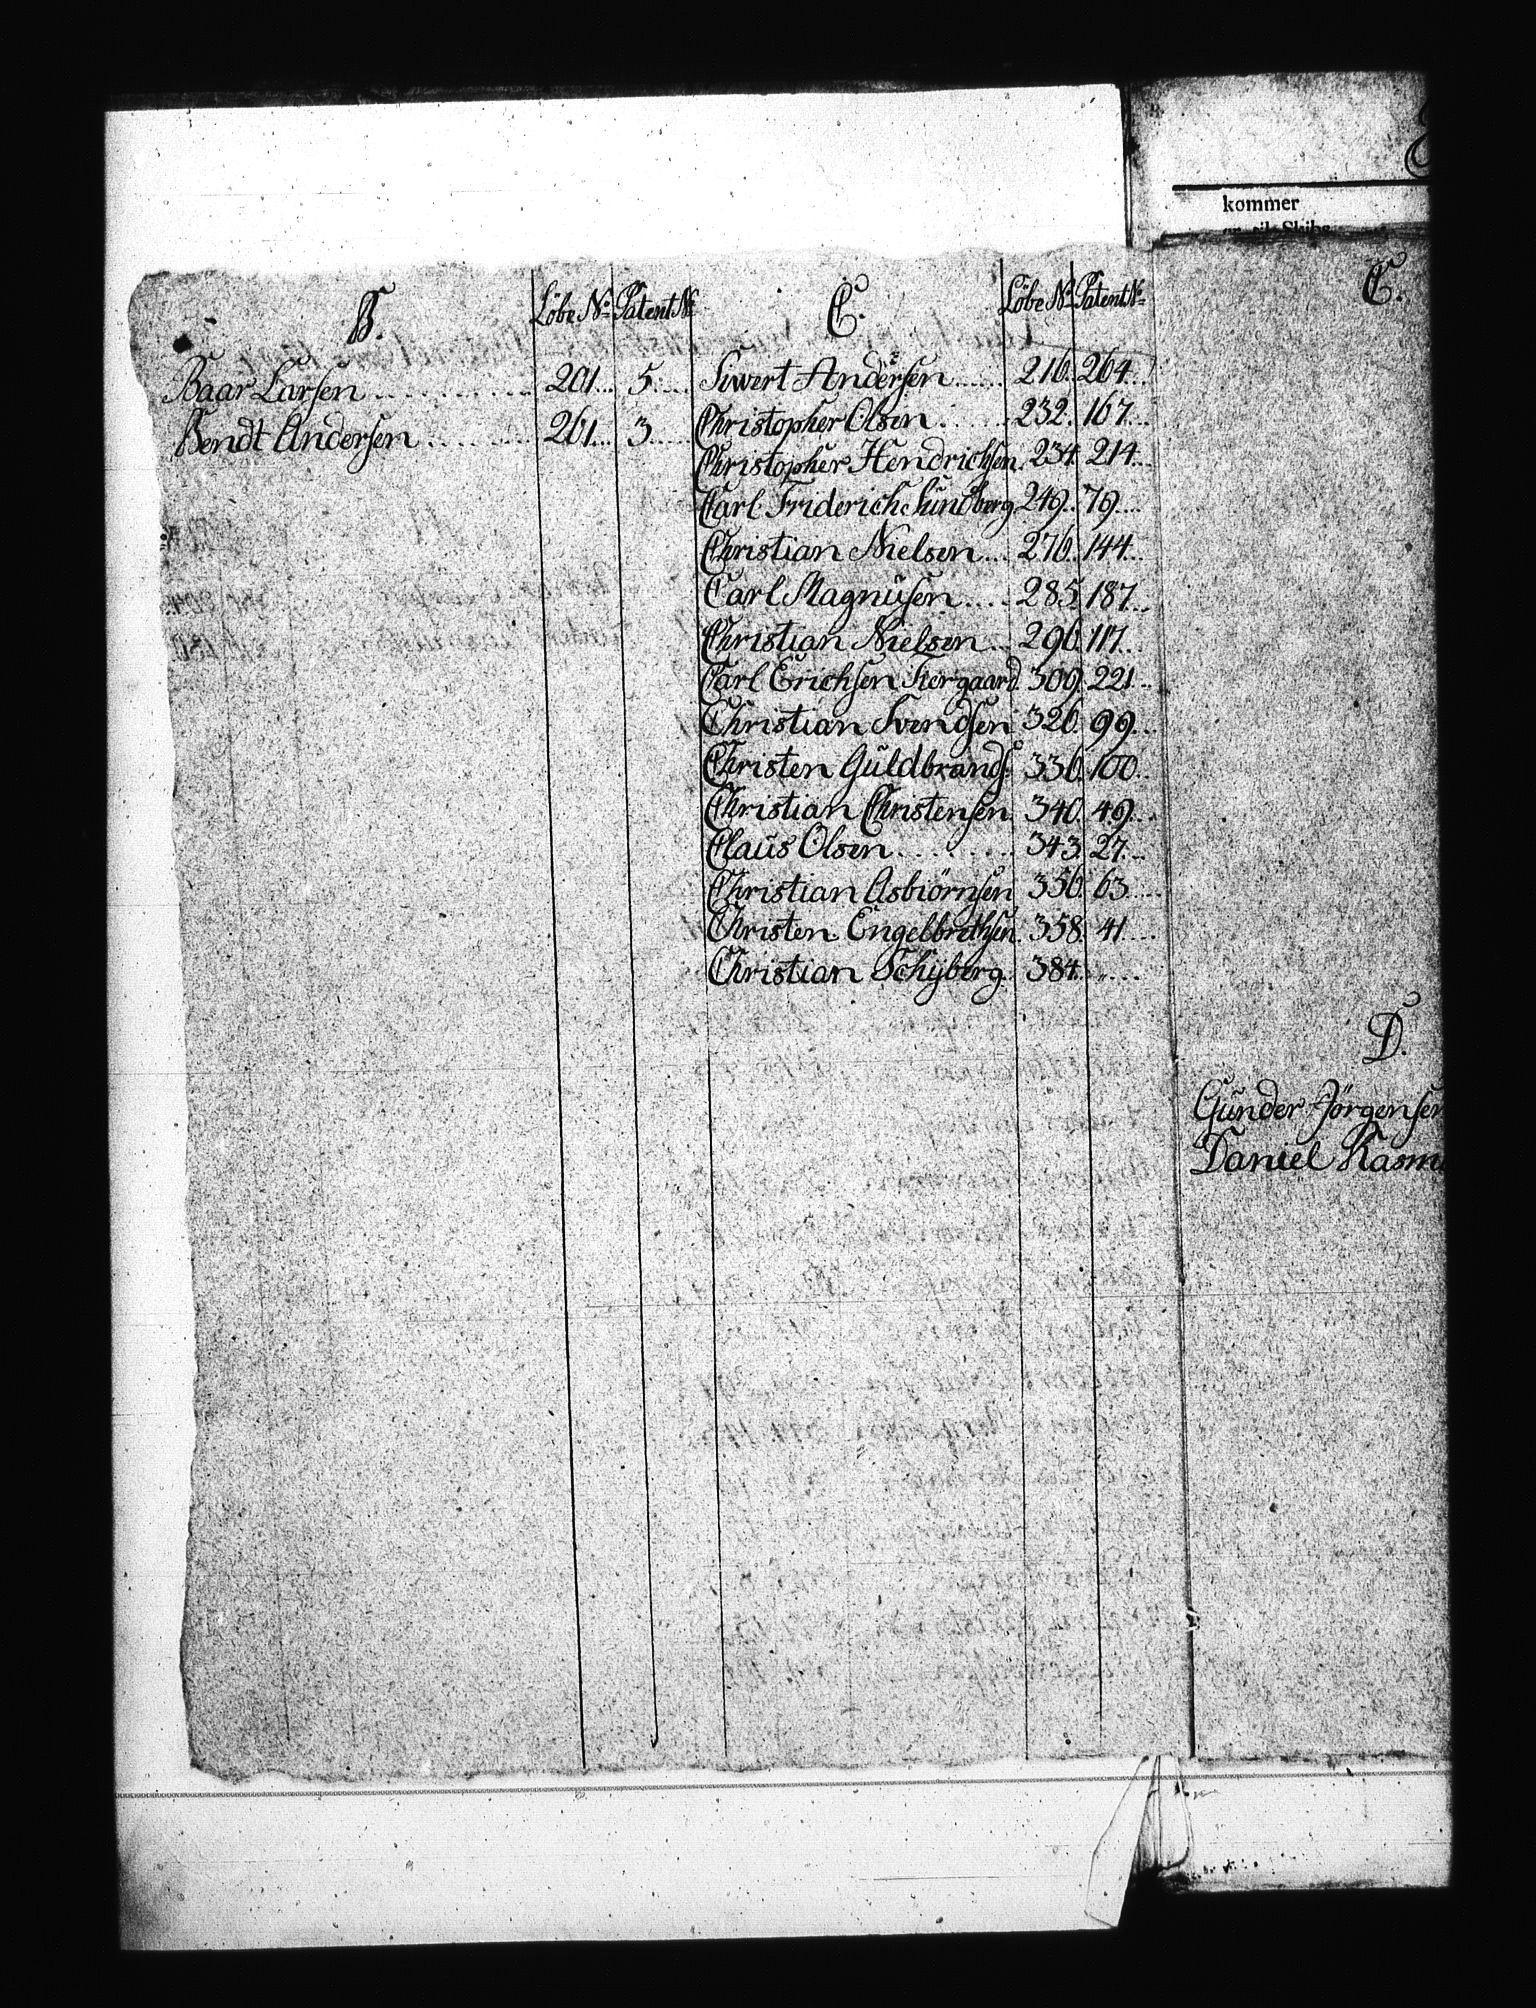 kommer
B.
Löbe No
Patent No
Baar Larsen . . . . . . . . . 201 . . 5 . . .
Bendt Andersen . . . . . . 261 . . 3 . . .
C.
Löbe No
Patent No
Siwert Andersen . . . 216. 264 . .
Christopher Olsen . . . . 232. 167 . .
Christopher Hendrichsen. 234. 214 . .
Carl Friderich Lundberg 249. 79 . . .
Christian Nielsen . . . 276. 144 . .
Carl Magnüsen . . . . 285. 187 . .
Christian Nielsen . . 296. 117 . .
Carl Erichsen 309. 221 . .
Christian Svendsen 326. 99 . .
Christen Güldbrands. 336. 100 . .
Christian Christensen. 340. 49 . .
Claüs Olsen . . . . . . . . 343. 27 . .
Christian Asbiörnsen 356. 63 . . .
Christen Engelbrethsen. 358. 41 . . .
Christian Schÿberg. 384. „ . . .
C.
D.
Günder Jörgensen
Daniel Rasmu